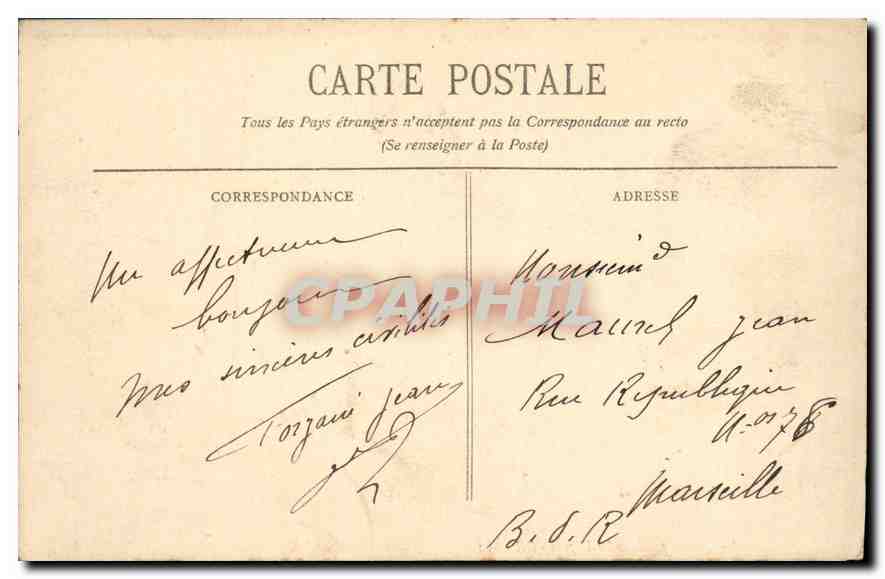 CARTE POSTALE
Tous les Pays étrangers n'acceptent pas la Correspondance au recto
(Se renseigner à la Poste)
CORRESPONDANCE
Un affectueux
bonjour
Mes sincères civilités
Jean
ADRESSE
Monsieur
Maurel Jean
Rue République
Marseille
B. d. R
CPAPHIL